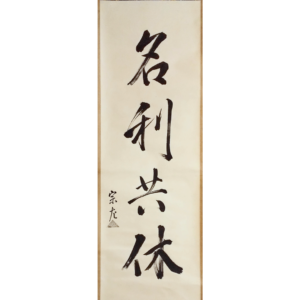 名利共休
宗左